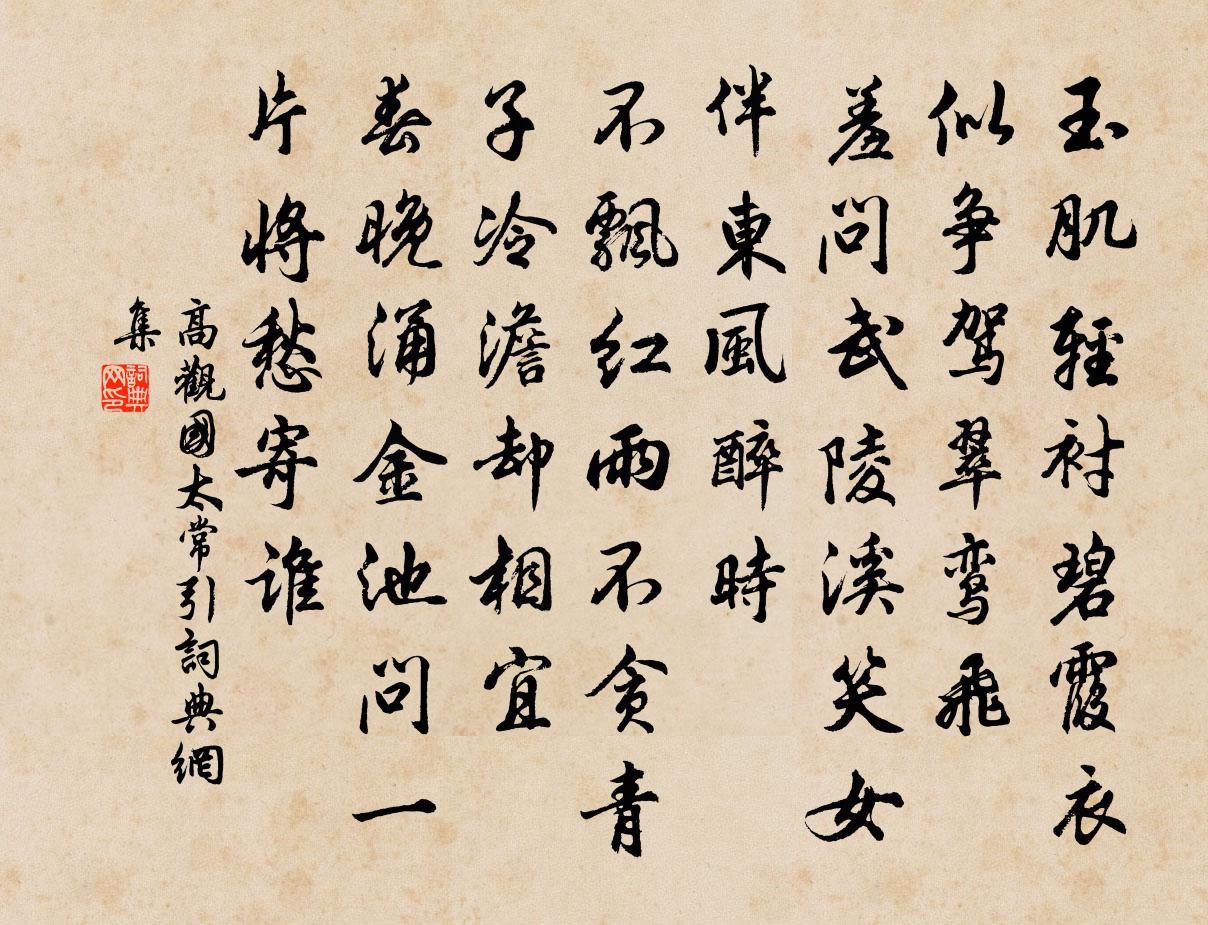 玉肌輕衬碧霞衣
似争駕翠鸾飛
羞问武陵溪笑女
伴東風醉時
不飄红雨不贪青
子冷澹却相宜
春晚涌金池问一
片将愁寄谁
高觀國太常引詞典網
集
詞典
网印